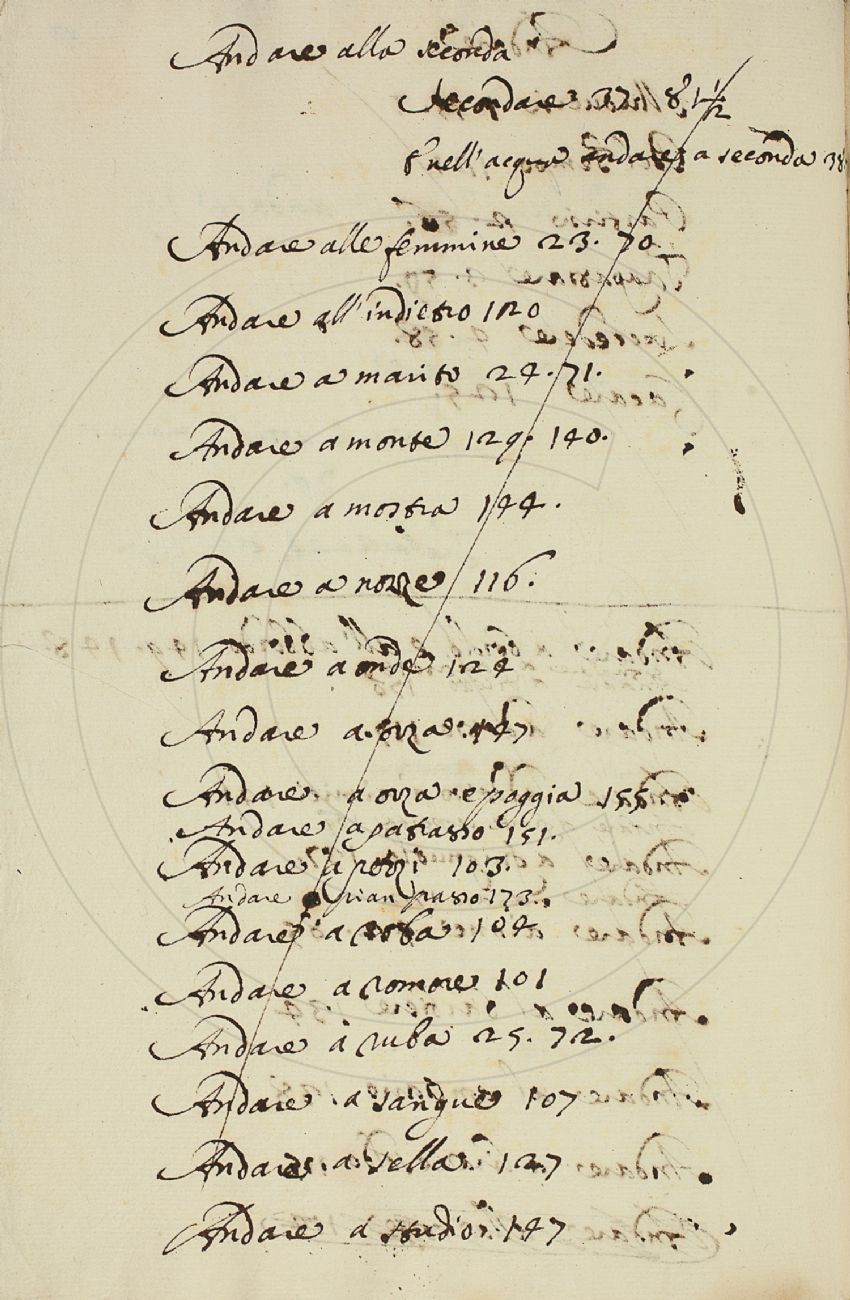 Andare alla seconda
Secondare 37. 8. 1 1/2
nell'acqua andare a seconda 38
Andare alle femmine 23. 70
Andare all'indietro 120
Andare a marito 24. 71.
Andare a monte 129. 140.
Andare a mostra 144.
Andare a nozze 116.
Andare a onde 124
Andare a orza 147
Andare a orza e poggia 155
Andare a patrasso 151.
Andare a pezzi 103.
Andare pian passo 173.
Andare a roba 104
Andare a romore 101
Andare à ruba 25. 72.
Andare a sangue 107
Andare a sella 127
Andare a studio 147